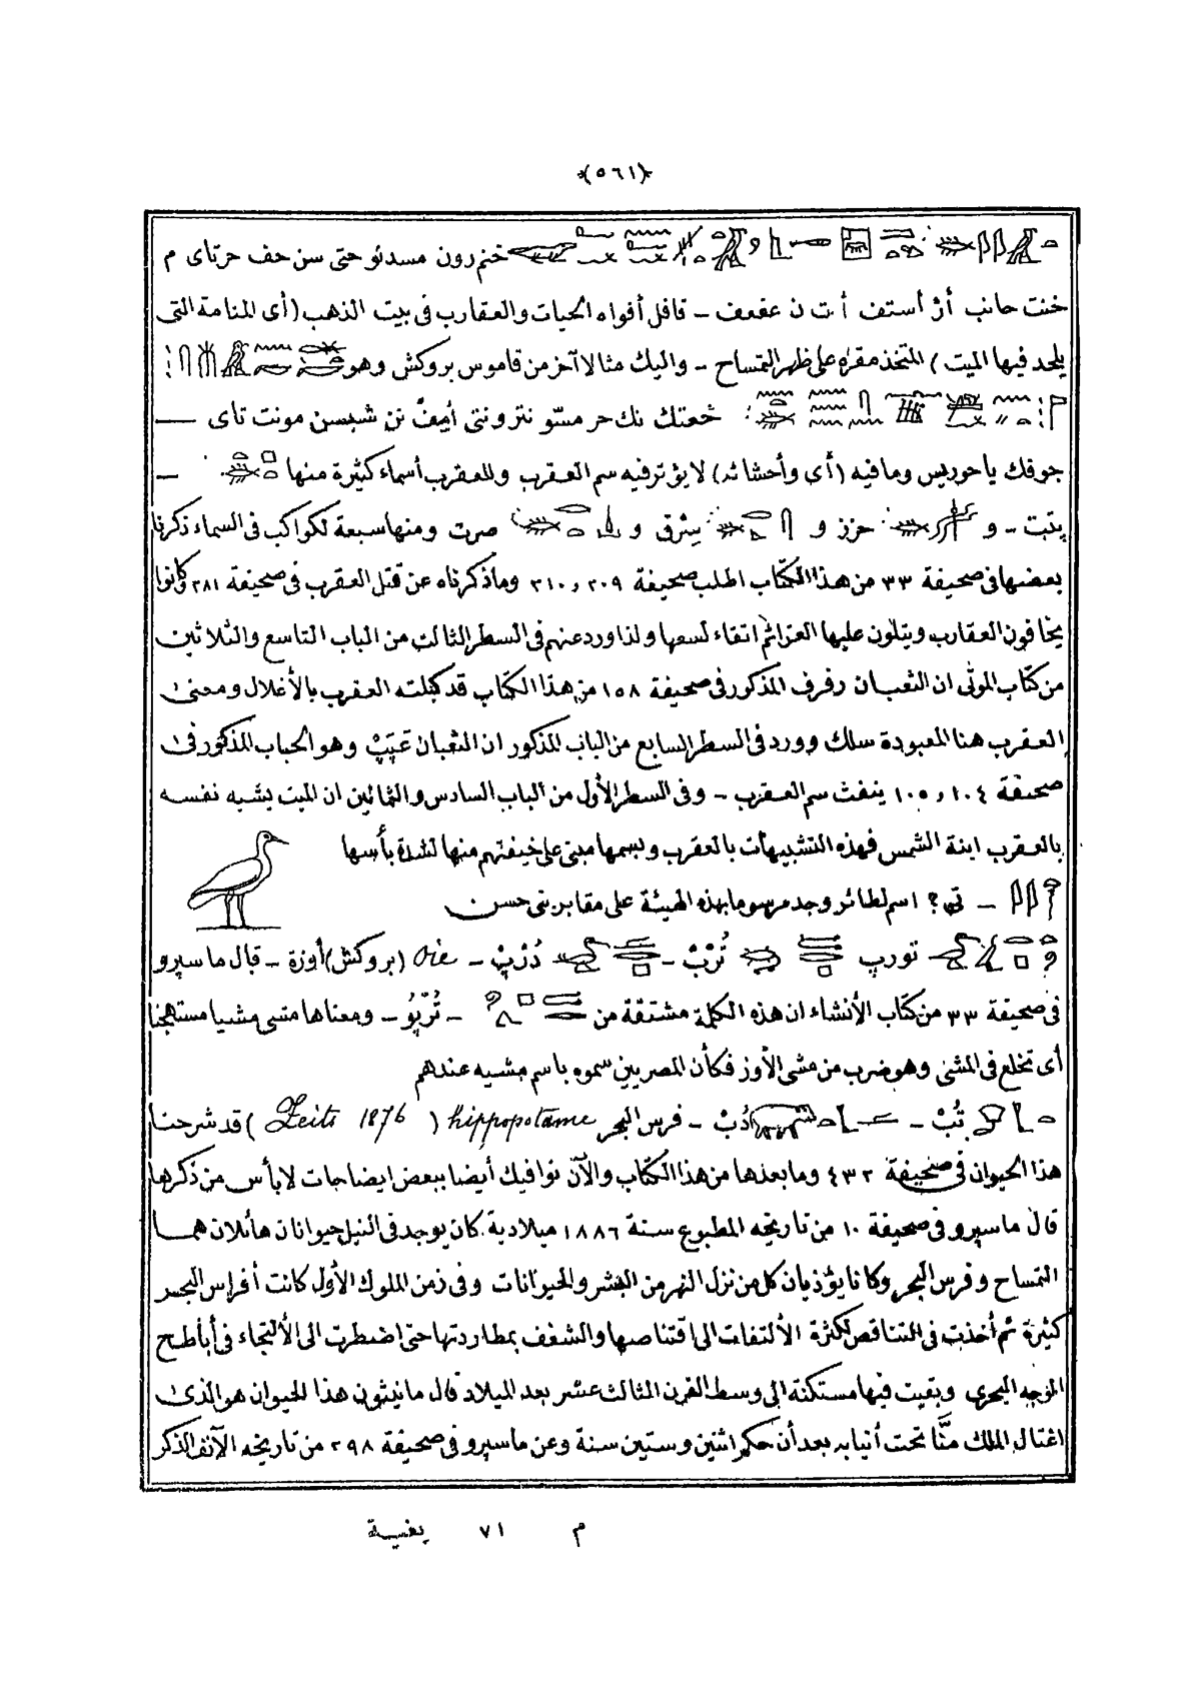 (٥٦١)
ختم رون مسدئو حتى سن حف حرتاى م
خنت حانب أز أستف أ ت ن عقعف – قافل أفواه الحيات والعقارب فى بيت الذهب (أى المنامة التى
يلحد فيها الميت) المتخذ مقره على ظهر التمساح – واليك مثالا آخر من قاموس بروكش وهو
نك حر مسّو نترونتى أمِفّ نن شبسن مونت تاى —
جوفك ياحوريس ومافيه (أى وأحشائه) لا يؤثر فيه سم العقرب وللعقرب أسماء كثيرة منها –
و حزز و و صرت ومنها سبعة لكواكب فى السماء ذكرنا
بعضها فى صحيفة ٣٣ من هذا الكتاب اطلب صحيفة ٢٠٩ و ٣١٠ وماذكرناه عن قتل العقرب فى صحيفة ٢٨١ كانوا
يخافون العقارب ويتلون عليها العزائم اتقاء لسعها ولذا ورد عنهم فى السطر الثالث من الباب التاسع والثلاثين
من كتاب الموتى ان الثعبان رفرف المذكور فى صحيفة ١٥٨ من هذا الكتاب قد كبلته العقرب بالأغلال ومعنى
العقرب هنا المعبودة سلك وورد فى السطر السابع من الباب المذكور ان الثعبان عَبَبْ وهو الحباب المذكور فى
صحيفة ١٠٤ و ١٠٥ ينفث سم العقرب – وفى السطر الأول من الباب السادس والثمانين ان الميت يشبه نفسه
بالعقرب ابنة الشمس فهذه التشبيهات بالعقرب وبسمها مبنى على خيفتهم منها لشدة بأسها
– تى ؟ اسم لطائر وجد مرسوما بهذه الهيئة على مقابر بنى حسن
تورپ تُرْبْ – دُرْبْ – Oie (بروكش) أوزة – قال ماسپرو
فى صحيفة ٣٣ من كتاب الأنشاء ان هذه الكلمة مشتقة من – تُرْپُو – ومعناها مشى مشيا مستهجنا
أى تخلع فى المشى وهو ضرب من مشى الأوز فكأن المصريين سموه باسم مشيه عندهم
تُبْ – دُبْ – فرس البحر hippopotame (Zeits 1876) قد شرحنا
هذا الحيوان فى صحيفة ٤٣٢ ومابعدها من هذا الكتاب والآن نوافيك أيضا ببعض ايضاحات لا بأس من ذكرها
قال ماسپرو فى صحيفة ١٠ من تاريخه المطبوع سنة ١٨٨٦ ميلادية كان يوجد فى النيل حيوانان هائلان هما
التمساح وفرس البحر وكانا يؤذيان كل من نزل النهر من البشر والحيوانات وفى زمن الملوك الأول كانت أفراس البحر
كثيرة ثم أخذت فى التناقص لكثرة الألتفات الى اقتناصها والشغف بمطاردتها حتى اضطرت الى الألتجاء فى أباطح
الوجه البحرى وبقيت فيها مستكنة الى وسط القرن الثالث عشر بعد الميلاد قال مانيثون هذا الحيوان هو الذى
اغتال الملك منّا تحت أنيابه بعد أن حكم اثنين وستين سنة وعن ماسپرو فى صحيفة ٢٩٨ من تاريخه الآنف الذكر
م ٧١ بغية